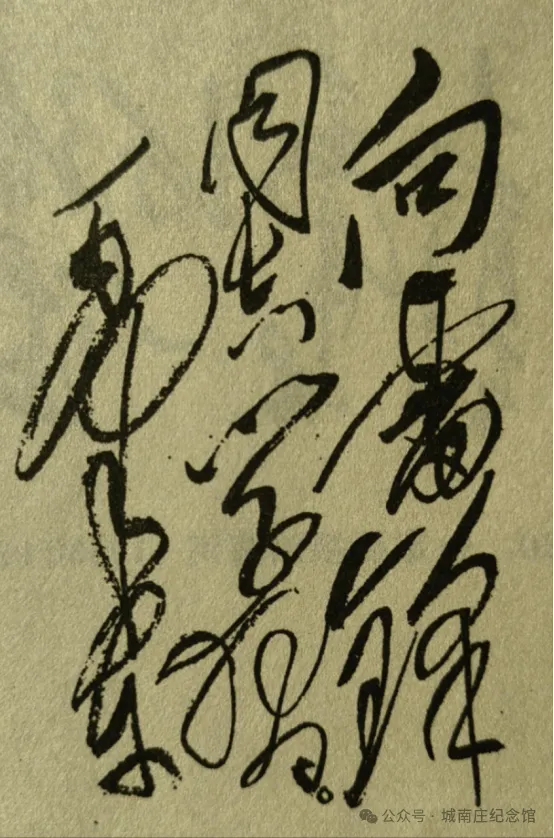 向雷锋
同志学习。
毛泽东
公众号·城南庄纪念馆